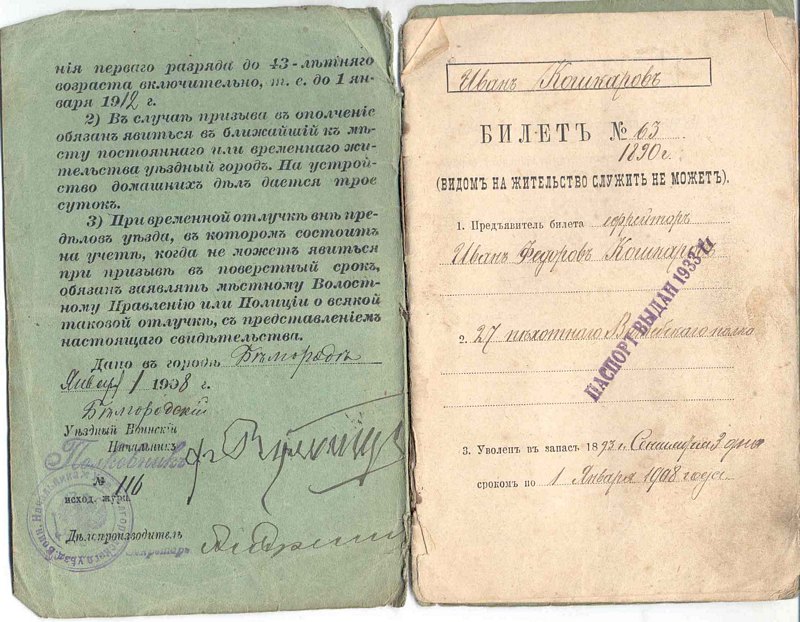 нія перваго разряда до 43-лѣтняго
возраста включительно, т. е. до 1 ян-
варя 1912 г.
2) Въ случаѣ призыва въ ополченіе
обязанъ явиться въ ближайшій къ мѣ-
сту постояннаго или временнаго жи-
тельства уѣздный городъ. На устрой-
ство домашнихъ дѣлъ дается трое
сутокъ.
3) При временной отлучкѣ внѣ пре-
дѣловъ уѣзда, въ которомъ состоитъ
на учетѣ, когда не можетъ явиться
при призывѣ въ поверстный срокъ,
обязанъ заявлять мѣстному Волост-
ному Правленію или Полиціи о всякой
таковой отлучкѣ, съ представленіемъ
настоящаго свидѣтельства.
Дано въ городѣ Бѣлгородѣ
Января 1 1908 г.
Бѣлгородскій
Уѣздный Воинскій
Начальникъ
Полковникъ
№ 116
исход. журн.
Дѣлопроизводитель
Секретарь
Иванъ Кошкаровъ
БИЛЕТЪ № 63
1890 г.
(ВИДОМЪ НА ЖИТЕЛЬСТВО СЛУЖИТЬ НЕ МОЖЕТЪ).
1. Предъявитель билета ефрейторъ
Иванъ Федоровъ Кошкаровъ
ПАСПОРТ ВЫДАН 1933 г.
2. 27 пѣхотнаго Витебскаго полка
3. Уволенъ въ запасъ 1893 г. Сентября 3 дня
срокомъ по 1 Января 1908 года